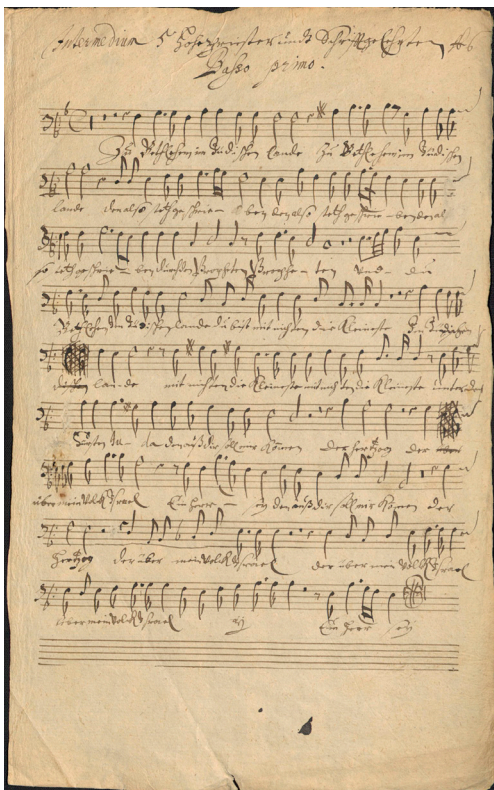 Intermedium 5 Hohepriester undt Schrifftgelehrten
Basso primo.
Zu Bethlehem im Jüdischen Lande Zu Bethlehem im Jüdischen
lande den also steht geschrie - ben den also steht geschrie - ben den al
so steht geschrie - ben durch den Propheten Propheten und du
Bethlehem im Jüdischen lande du bist mit nichten die Kleineste Im Jüdischen
lande mit nichten die Kleineste mit nichten die Kleineste unter den
Fürsten Ju - da den auß dir soll mir Komen der Hertzog der
über mein Volck Israel Ein Herr sey den auß dir soll mir Komen der
Hertzog der über mein Volck Israel der über mein Volck Israel
über mein Volck Israel ij Ein Herr sey